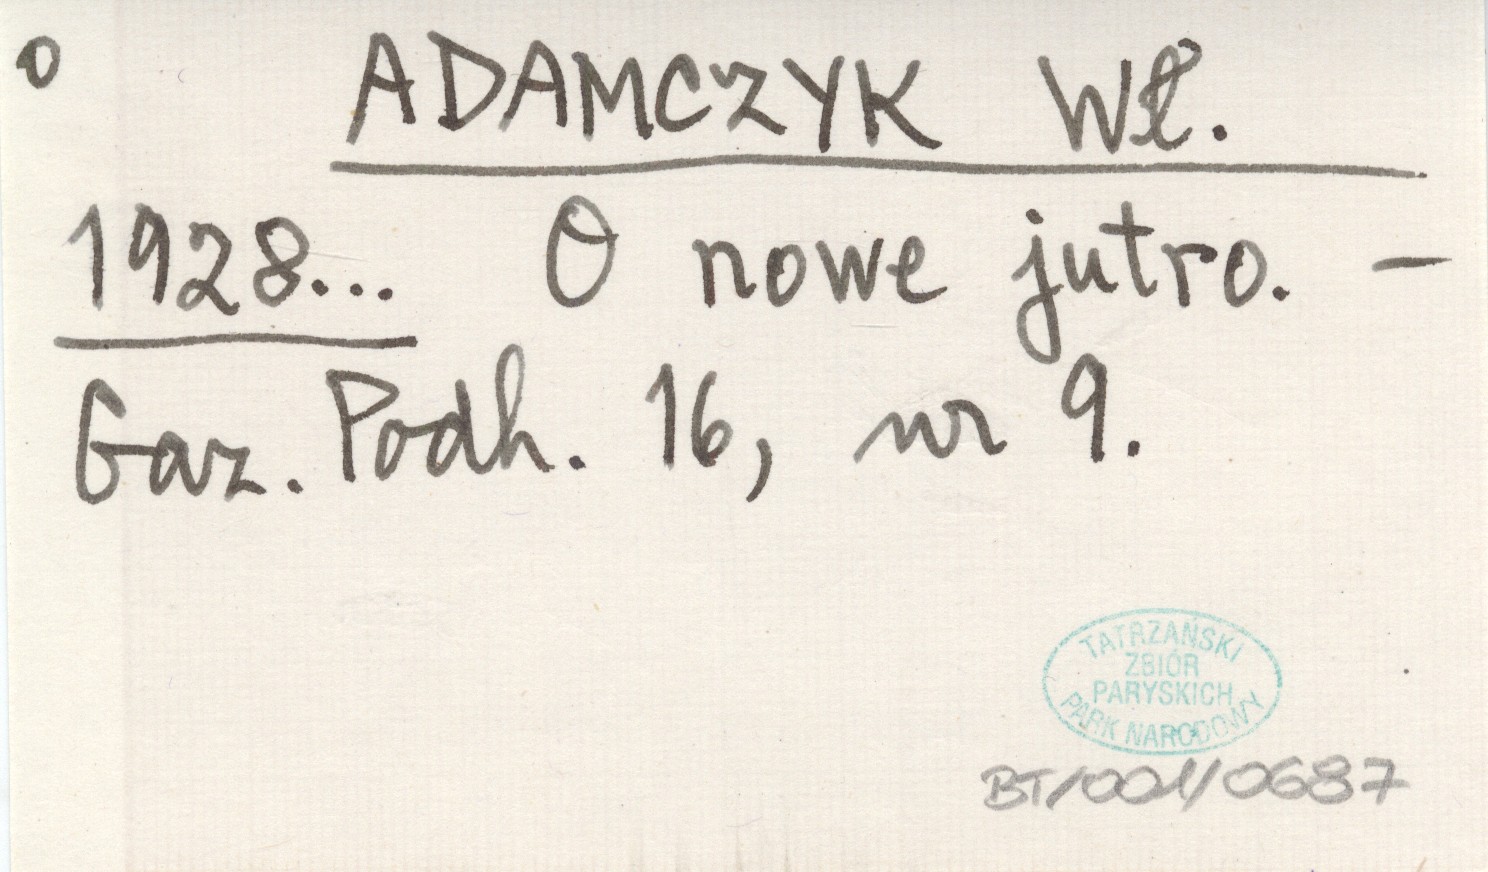 o
ADAMCZYK Wł.
1928... O nowe jutro. –
Gaz. Podh. 16, nr 9.
TATRZAŃSKI
ZBIÓR
PARYSKICH
PARK NARODOWY
BT/001/0687